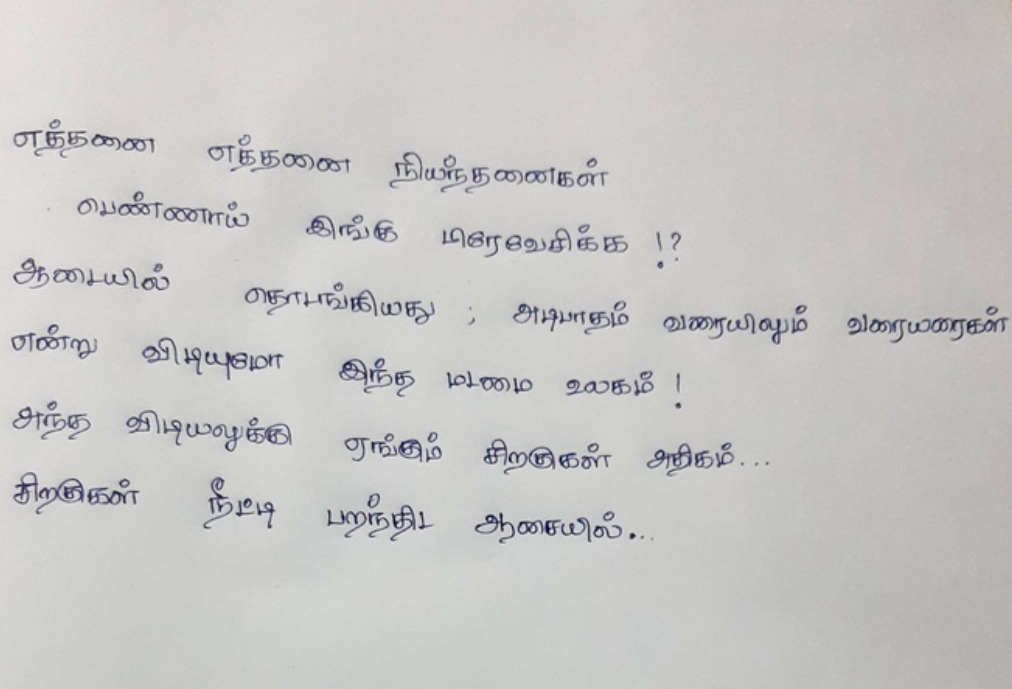 எத்தனை எத்தனை நியந்தனைகள்
பெண்ணாய் இங்கு பிரேவேசிக்க !?
ஆடையில் தொடங்கியது ; அடிபாதம் வரையிலும் வரையரைகள்
என்று விடியுமோ இந்த மடமை உலகம் !
அந்த விடியலுக்கு ஏங்கும் சிறகுகள் அதிகம்...
சிறகுகள் நீட்டி பறந்திட ஆசையில்...